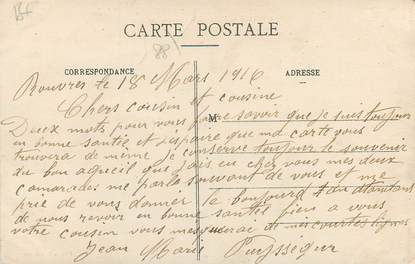 BF
CARTE POSTALE
(88)
CORRESPONDANCE
ADRESSE
M
Rouvres le 18 Mars 1916
Chers cousin et cousine
Deux mots pour vous faire savoir que je suis toujours
en bonne santée et j'espaire que ma carte vous
trouvera de même je conserve toujour le souvenir
du bon aqceuil que j'ais eu cher vous mes deux
comarades me parle souvant de vous et me
prie de vous donner le bonjour
de nous revoir en bonne santée a vous
votre cousin vous mes courtes lignes
Jean Marie Puyssegur